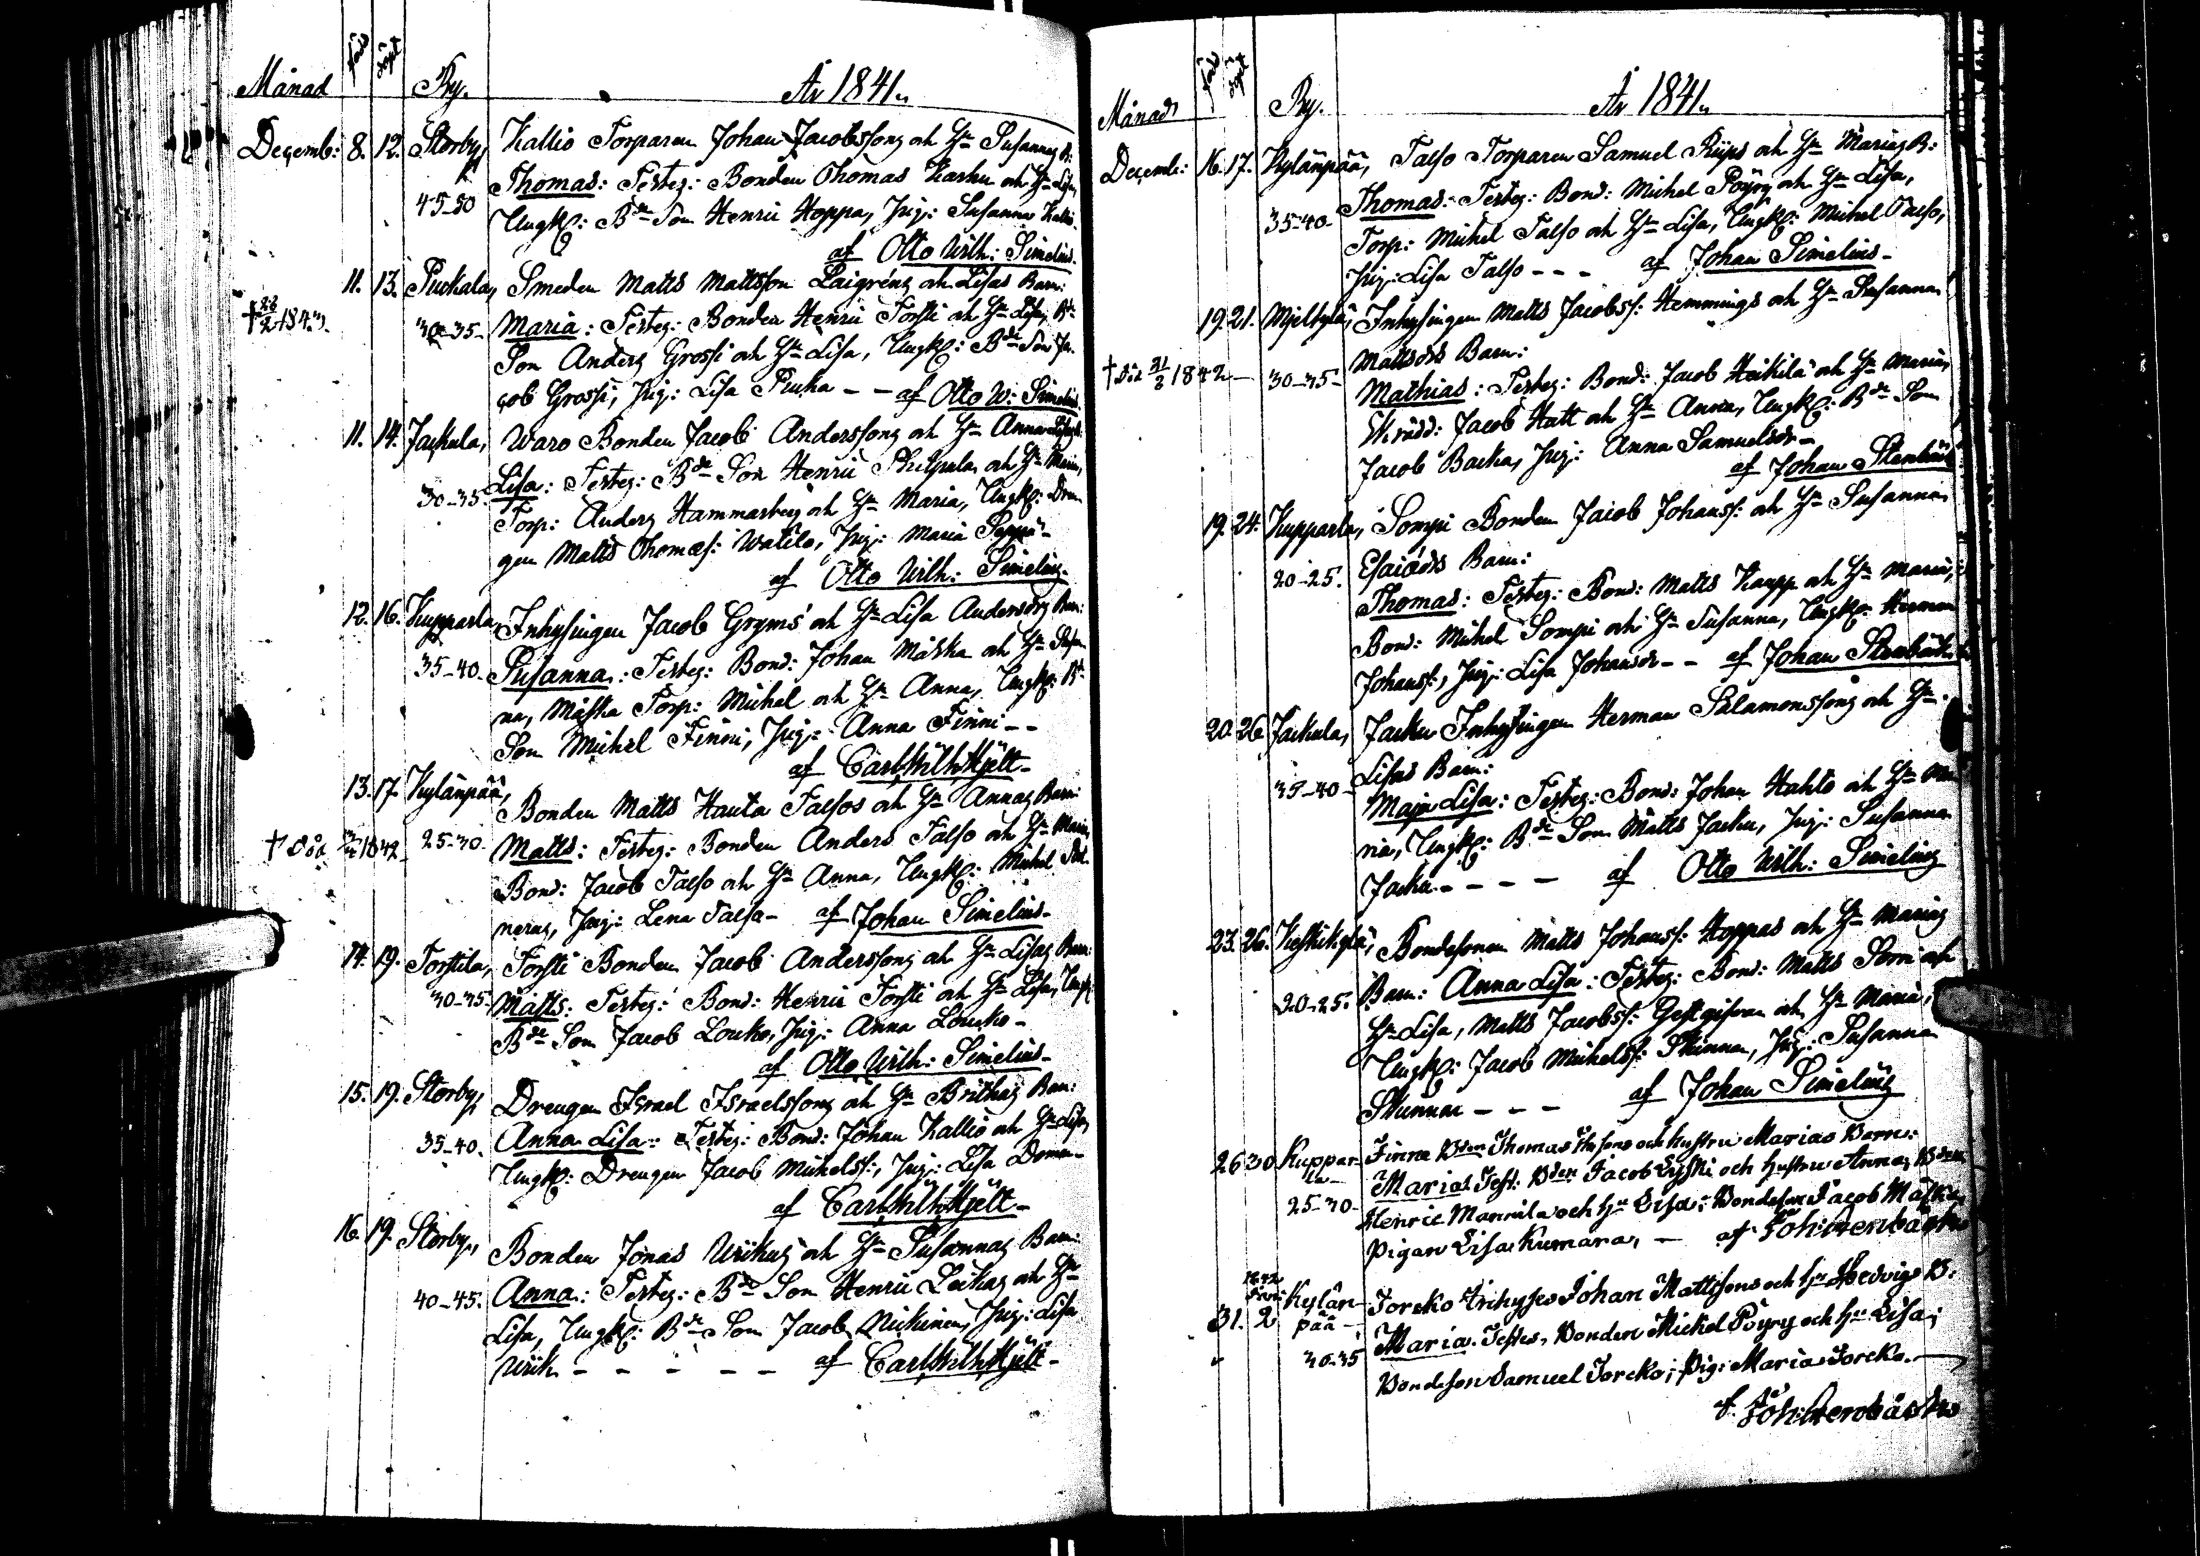 Månad född döpt By. År 1841.
Decemb: 8. 12. Storby, Kallio Torparen Johan Jacobssons och Hu Susannas B:
45-50 Thomas: Testes: Bonden Thomas Karhu och Hu Lisa,
Ungk: Bde Son Henric Hoppa, Pig: Susanna Kallio
af Otto Wilh: Simelius.
11. 13. Puckala, Smeden Matts Mattsson Laigréns och Lisas Barn:
† 26/2 1843.
30-35- Maria: Testes: Bonden Henric Torsti och Hu Lisa, Bde
Son Anders Grossi och Hu Lisa, Ungk: Bde Son Ja-
cob Grossi, Pig: Lisa Pucka - - af Otto W: Simelius.
11. 14. Jackula, Waro Bonden Jacob Anderssons och Hu Anna
30-35. Lisa: Testes: Bde Son Henric Philpula och Hu Maria,
Torp: Anders Hammarberg och Hu Maria, Ungk: Drän-
gen Matts Thomas: Watilo, Pig: Maria Seppä-
af Otto Wilh: Simelius-
12. 16. Kupparla, Inhysingen Jacob Gryms och Hu Lisa Andersdrs Barn:
35-40. Susanna: Testes: Bond: Johan Mäska och Hu Susan-
na, Mäska Torp: Michel och Hu Anna, Ungk: Bde
Son Michel Finni, Pig: Anna Finni - -
af Carl Wilh Hjelt-
13. 17. Kylänpää, Bonden Matts Hauta Talsos och Hu Annas Barn:
† död 1842 25-30. Matts: Testes: Bonden Anders Talso och Hu Maria,
Bond: Jacob Talso och Hu Anna, Ungk: Michel
Pig: Lena Talso- af Johan Simelius-
14. 19. Torstila, Torsti Bonden Jacob Anderssons och Hu Lisas Barn:
30-35- Matts: Testes: Bond: Henric Torsti och Hu Lisa, Ungk:
Bde Son Jacob Loucko, Pig: Anna Loucko-
af Otto Wilh: Simelius-
15. 19. Storby, Drengen Israel Israelssons och Hu Brithas Barn:
35-40. Anna Lisa: Testes: Bond: Johan Kallio och Hu Lisa,
Ungk: Drengen Jacob Michelss:, Pig: Lisa
af Carl Wilh Hjelt-
16. 19. Storby, Bonden Jonas Wrikus och Hu Susannas Barn:
40-45. Anna: Testes: Bde Son Henric Leikas och Hu
Lisa, Ungk: Bde Son Jacob Mickinen, Pig: Lisa
Wrik - - - - - af Carl Wilh Hjelt-
Månad född döpt By. År 1841.
Decemb: 16. 17. Kylänpää, Talso Torparen Samuel Riips och Hu Marias B:
35-40- Thomas: Testes: Bond: Michel Pöyry och Hu Lisa,
Torp: Michel Talso och Hu Lisa, Ungk: Michel Talso,
Pig: Lisa Talso - - - af Johan Simelius-
19. 21. Mjelkylä, Inhysingen Matts Jacobss: Hemmings och Hu Susanna
Mattsdrs Barn:
† död 21/3 1842- 30-35- Mathias: Testes: Bond: Jacob Heikilä och Hu Maria,
Skrädd: Jacob Hatt och Hu Anna, Ungk: Bde Son
Jacob Backa, Pig: Anna Samuelsdr-
af Johan Stenbäck
19. 24. Kupparla, Sompi Bonden Jacob Johanss: och Hu Susanna
Esaiædrs Barn:
20-25. Thomas: Testes: Bond: Matts Kaupp och Hu Maria,
Bond: Michel Sompi och Hu Susanna, Ungk: Herman
Johanss:, Pig: Lisa Johansdr- - af Johan Stenbäck
20. 26. Jackula, Jacku Inhysingen Herman Salamonssons och Hu
Lisas Barn:
35-40- Maja Lisa: Testes: Bond: Johan Hahto och Hu Ma-
ria, Ungk: Bde Son Matts Jacku, Pig: Susanna
Jacku - - - - af Otto Wilh: Simelius
23. 26. Keskikylä, Bondesonen Matts Johanss: Hoppas och Hu Marias
20-25. Barn: Anna Lisa: Testes: Bond: Matts Sorri och
Hu Lisa, Matts Jacobss: Gestgifvan och Hu Maria,
Ungk: Jacob Michelss: Skinnar, Pig: Susanna
Skinnar - - - af Johan Simelius
26 30 Kuppar-
la- Finne Bden Thomas och hustru Marias Barn:
25-30- Maria Test: Bden Jacob Lyski och hustru Anna, Bden
Henric Mannila och Hu Lisa; Bondeson Jacob Mäska,
Pigan Lisa Kumara, - af Joh: Stenbäck
1842 Janu:
31. 2 Kylän-
pää- Joroko Inhyses Johan Mattssons och Hu Hedvigs B:
30-35 Maria. Testes, Bonden Mickel Pöyry och Hu Lisa;
Bondeson Samuel Joroko; Pig: Maria Joroko. -
af Joh: Stenbäck